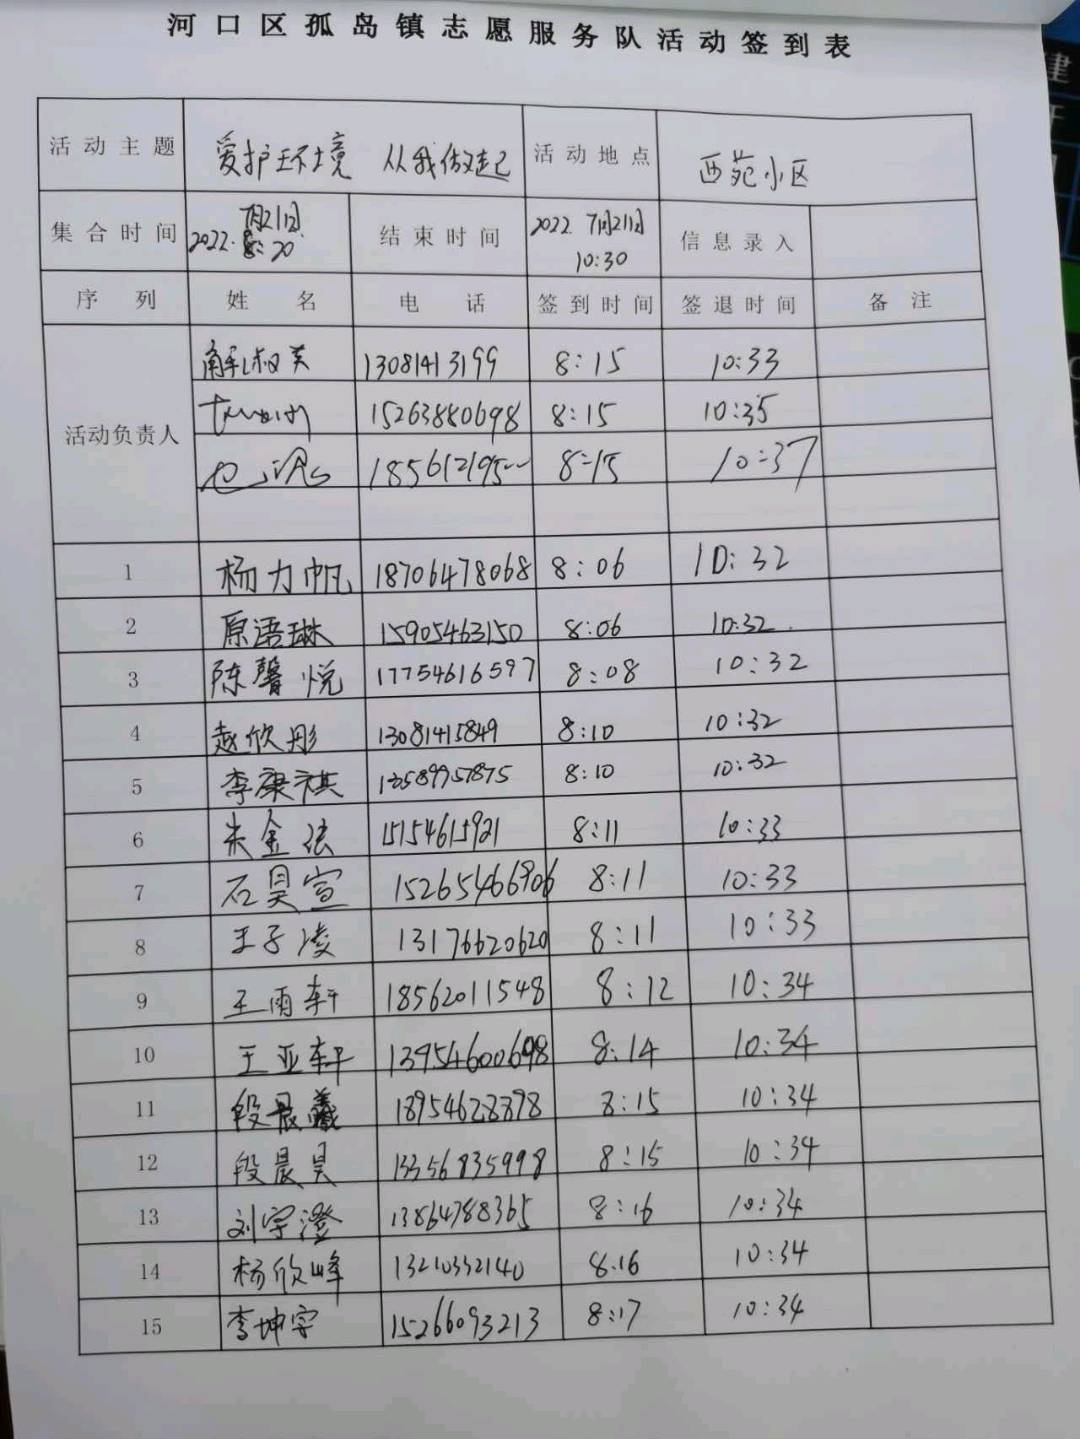 河口区孤岛镇志愿服务队活动签到表
活动主题 爱护环境 从我做起 活动地点 西苑小区
集合时间 2022.7月21日 8:20 结束时间 2022 7月21日 10:30 信息录入
序列 姓名 电话 签到时间 签退时间 备注
活动负责人
解淑英 13081413199 8:15 10:33
15263880698 8:15 10:35
8:15 10:37
1 杨力帆 18706478068 8:06 10:32
2 原语琳 15905463150 8:06 10:32
3 陈馨悦 17754616597 8:08 10:32
4 赵欣彤 13081415849 8:10 10:32
5 李康祺 13589957875 8:10 10:32
6 朱金 15154615921 8:11 10:33
7 石昊宣 15265466906 8:11 10:33
8 王子凌 13176620620 8:11 10:33
9 王雨轩 18562011548 8:12 10:34
10 王亚轩 13954600698 8:14 10:34
11 段晨曦 18954628898 8:15 10:34
12 段晨昊 13356835998 8:15 10:34
13 刘宇澄 13864788365 8:16 10:34
14 杨欣峰 13210332140 8:16 10:34
15 李坤宇 15266093213 8:17 10:34
建